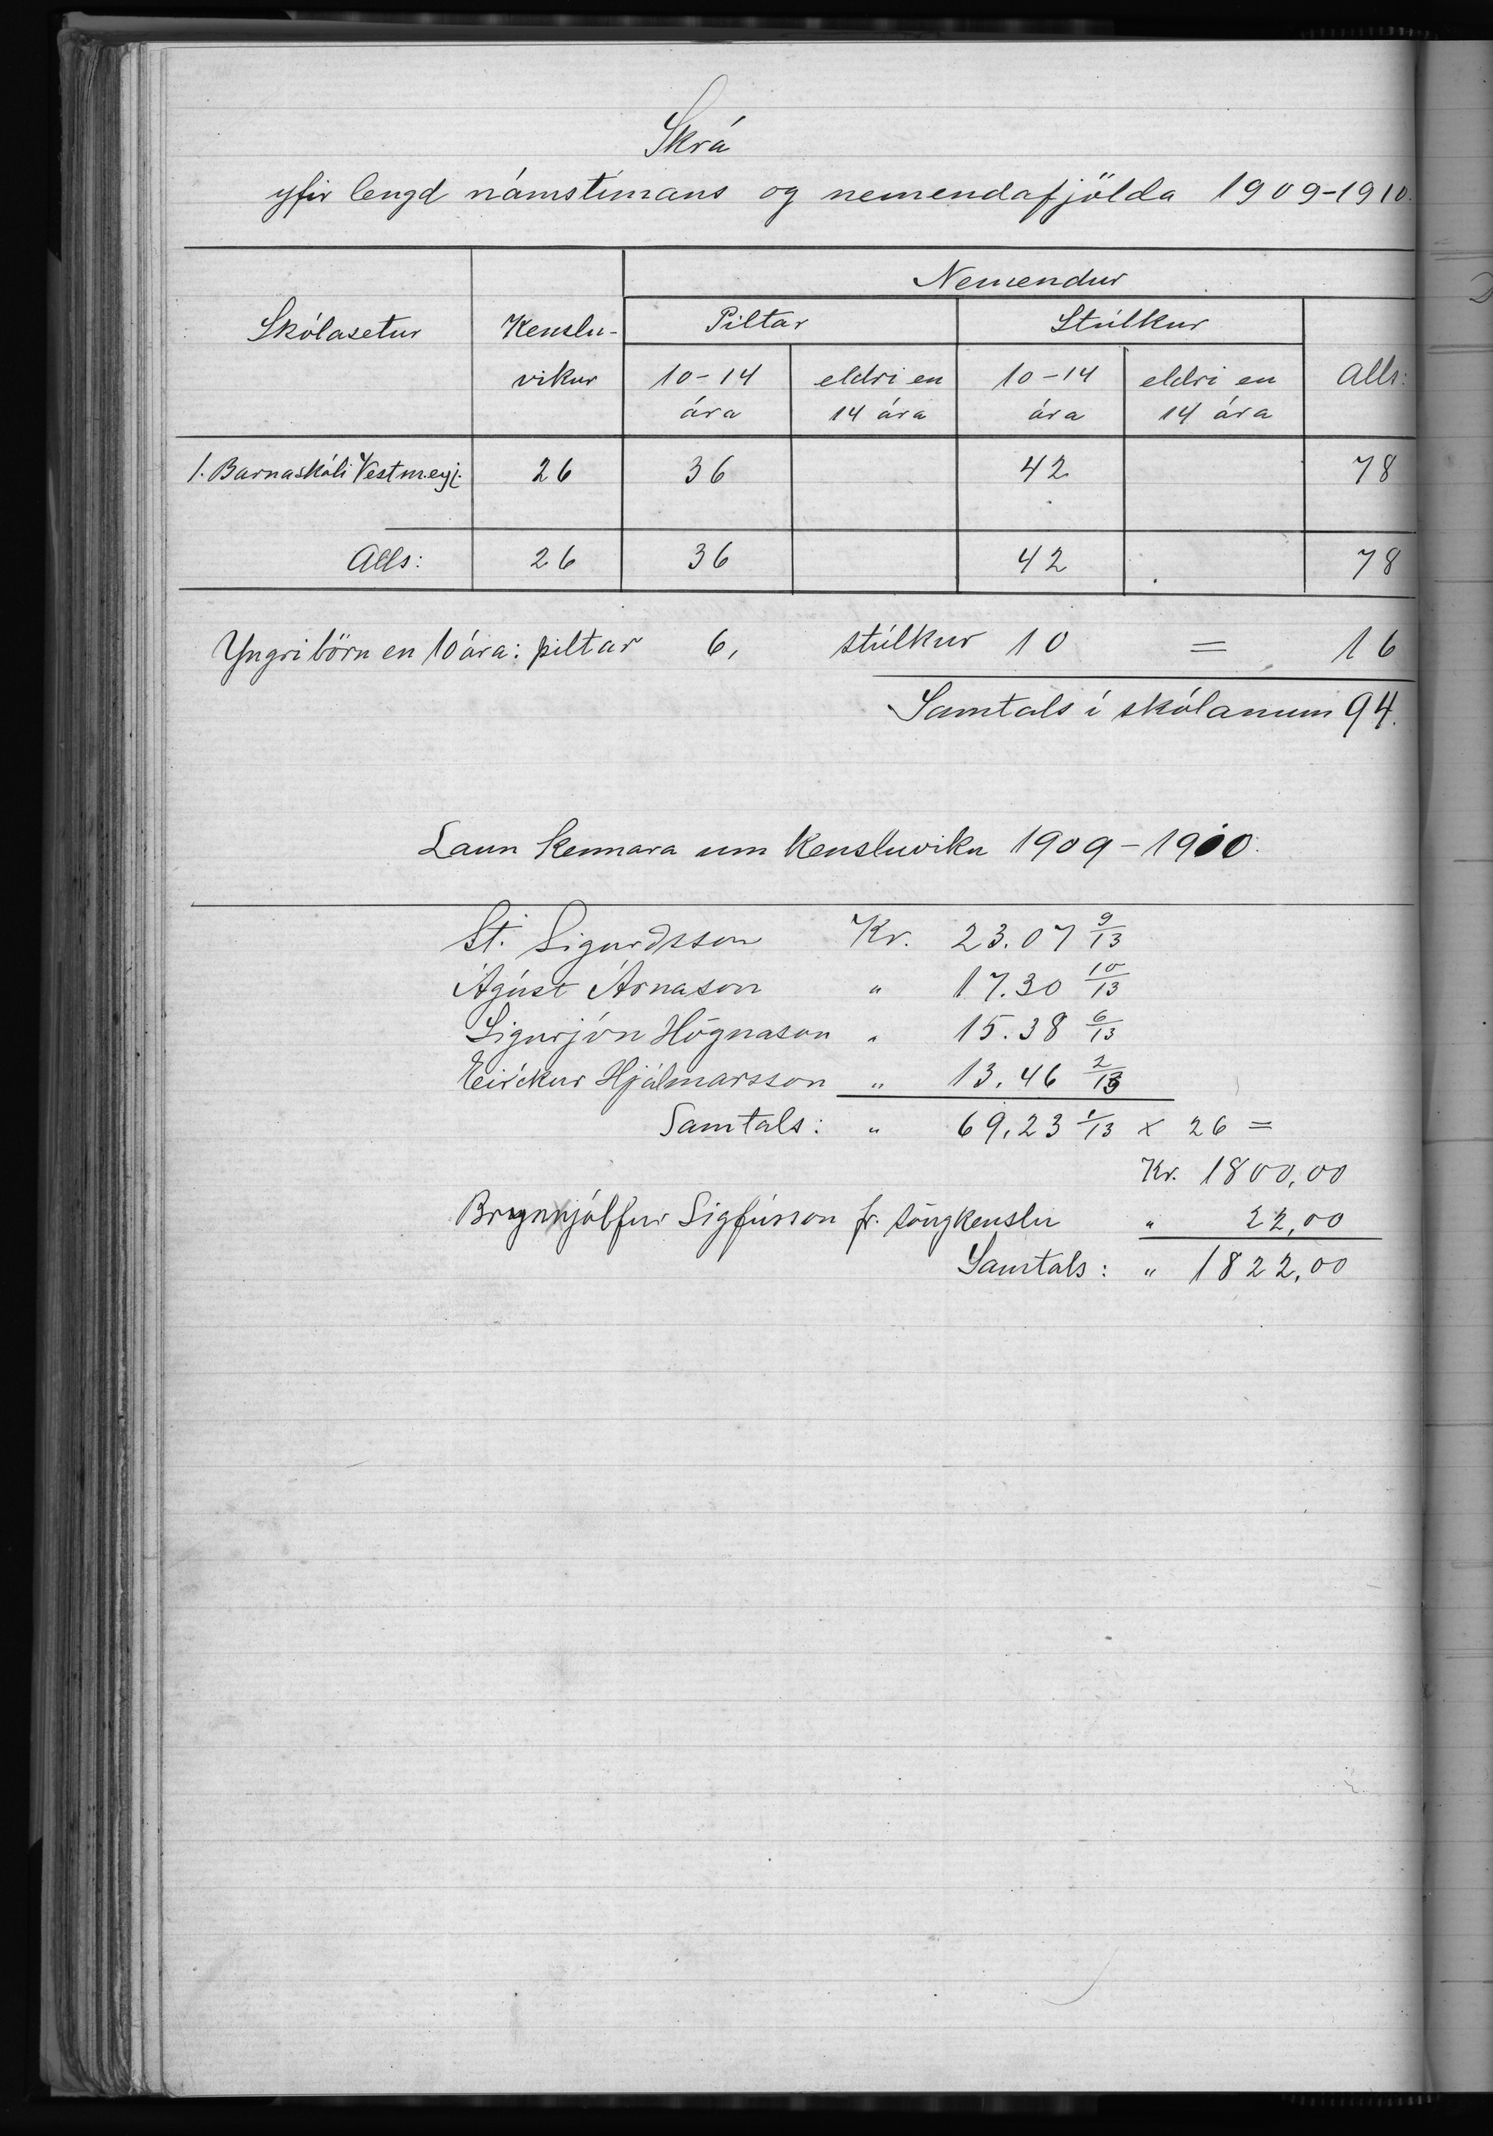 Skrá
yfir lengd námstímans og nemendafjölda 1909-1910.
Nemendur
Skólasetur Kenslu- Piltar Stúlkur
vikur 10-14 eldri en 10-14 eldri en Alls:
ára 14 ára ára 14 ára
1. Barnaskóli Vestm.eyj. 26 36 42 78
Alls: 26 36 42 78
Yngri börn en 10 ára: piltar 6, stúlkur 10 = 16
Samtals í skólanum 94.
Laun kennara um kensluviku 1909-1910.
St. Sigurðsson Kr. 23.07 9/13
Ágúst Árnason " 17.30 10/13
Sigurjón Högnason " 15.38 6/13
Eiríkur Hjálmarsson " 13.46 2/13
Samtals: " 69,23 1/13 x 26 =
Kr. 1800,00
Brynjólfur Sigfússon fr. söngkenslu " 22,00
Samtals: " 1822,00